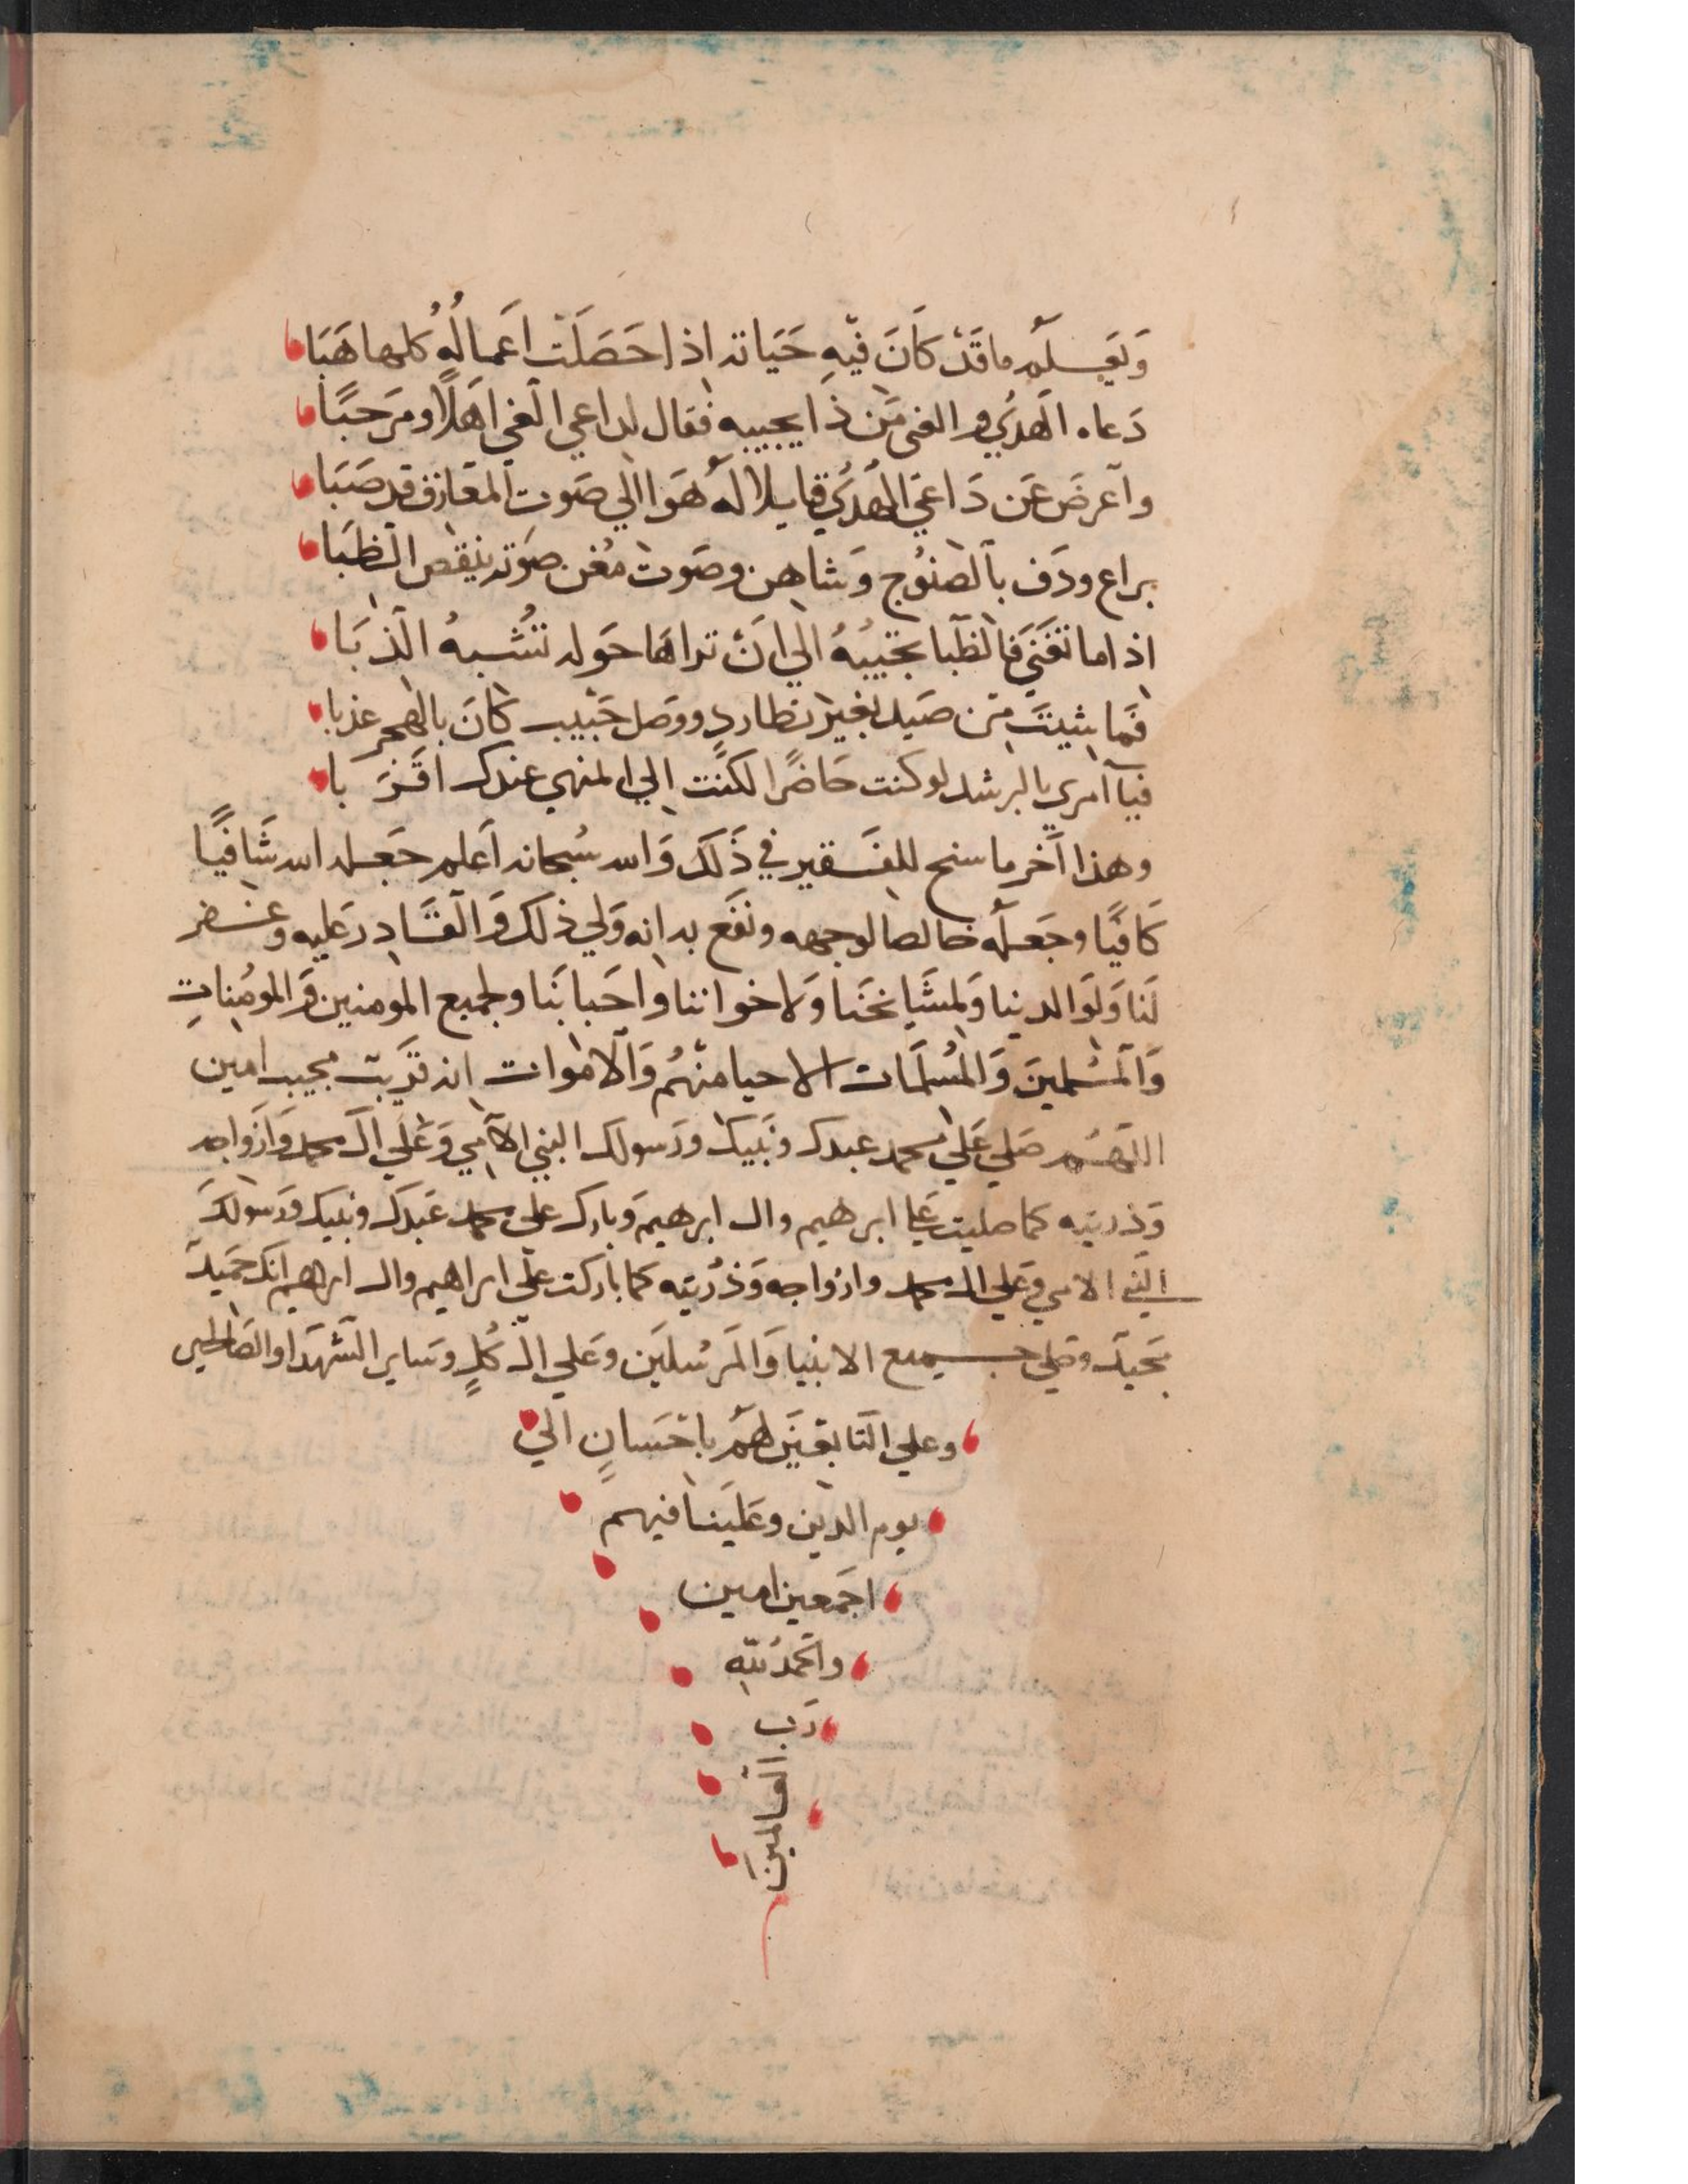 وَيَعلَم ما قَدْ كَانَ فِيهِ حَيَاته اذا حَصَلَت اَعمالُهُ كلها هَبَا
دَعاه الهَدُي والغي مَن ذا يجيبه فقال لداعي الغي اَهلًا ومَرحبًا
واَعرضَ عَن دَاعيَ الهَدُي قايلا لَه هَوا الي صَوت المعَازف قد صَبَا
يراع ودَف بالصنُوج وَشاهن وصَوت مُغن صَوته ينقص الظبَا
اذا ما تغَني فالظبا تجيبهُ الي اَنْ تراهَا حَوله تشُبهُ الذبَا
فما من صَيد بغير تطارد ووَصل حَبيب كانَ بالهجر عذبا
فيا آمري بالرشد لو كنت حَاضرًا لكنت الي المنهي عندك اقرَبا
وهذا آخر ما سنح للفقير في ذَلك وَالله سُبحانه اَعلم جَعله الله شَافيًا
كَافيًا وجَعلَه خالصا لوجهه ونفَع به انه وَلي ذلك وَالقَادِر عَليه وغفر
لَنا وَلوَالدينا وَلمشَايخنَا وَلاخواننا واحَبابَنا ولجميع المومنين وَالمومُناتِ
وَالمسُلمينَ وَالمُسلمَات الاحيا منهُم وَالاموات انه قرَيب مجيب امين
اللهُم صَلي عَلي محمد عبدك ونَبيك ورَسولك النبي الامي وَعَلي ال محمد وَازواجه
وَذريته كما صليت عَلي ابرهيم وال ابرهيم وَبارك علي محمد عَبدك ونبيك وَرسولكَ
النبي الامي وعَلي ال محمد وازواجه وَذرُيته كما بَاركت علَي ابراهيم وال ابرهيم انك حَميد
مَجيد وصَلي جميع الانبيا وَالمرَسُلينَ وعَلي ال كُلٍ وسَاير الشَهدَا والصَالحين
وعلي التَابعَينَ لهَم باحَسانٍ الي
يوم الدين وعلَينا فيهم
اجمَعين امين
والحَمدُ للهِ
رَب
العالمينَ